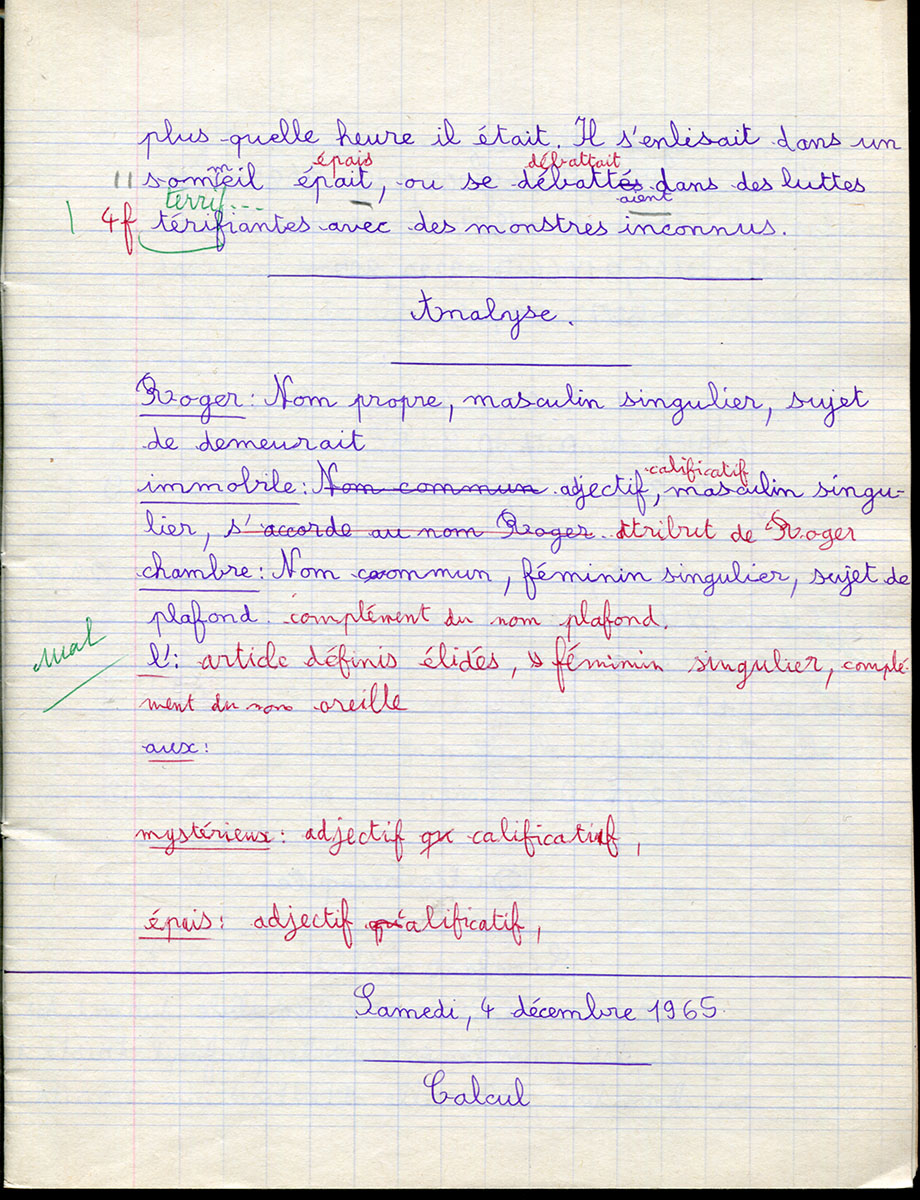 plus quelle heure il était. Il s'enlisait dans un
épais débattait
|| someil m épait, ou se débattés dans des luttes
terrif... aient
| 4f térifiantes avec des monstres inconnus.
Analyse.
Roger : Nom propre, masculin singulier, sujet
de demeurait
calificatif
immobile : Nom commun adjectif, masculin singu-
lier, s'accorde au nom Roger. attribut de Roger
chambre : Nom commun, féminin singulier, sujet de
plafond. complément du nom plafond.
mal l' : article définis élidés, féminin singulier, complé-
ment du nom oreille
aux :
mystérieux : adjectif qu calificatif,
épais : adjectif qualificatif,
Samedi, 4 décembre 1965
Calcul